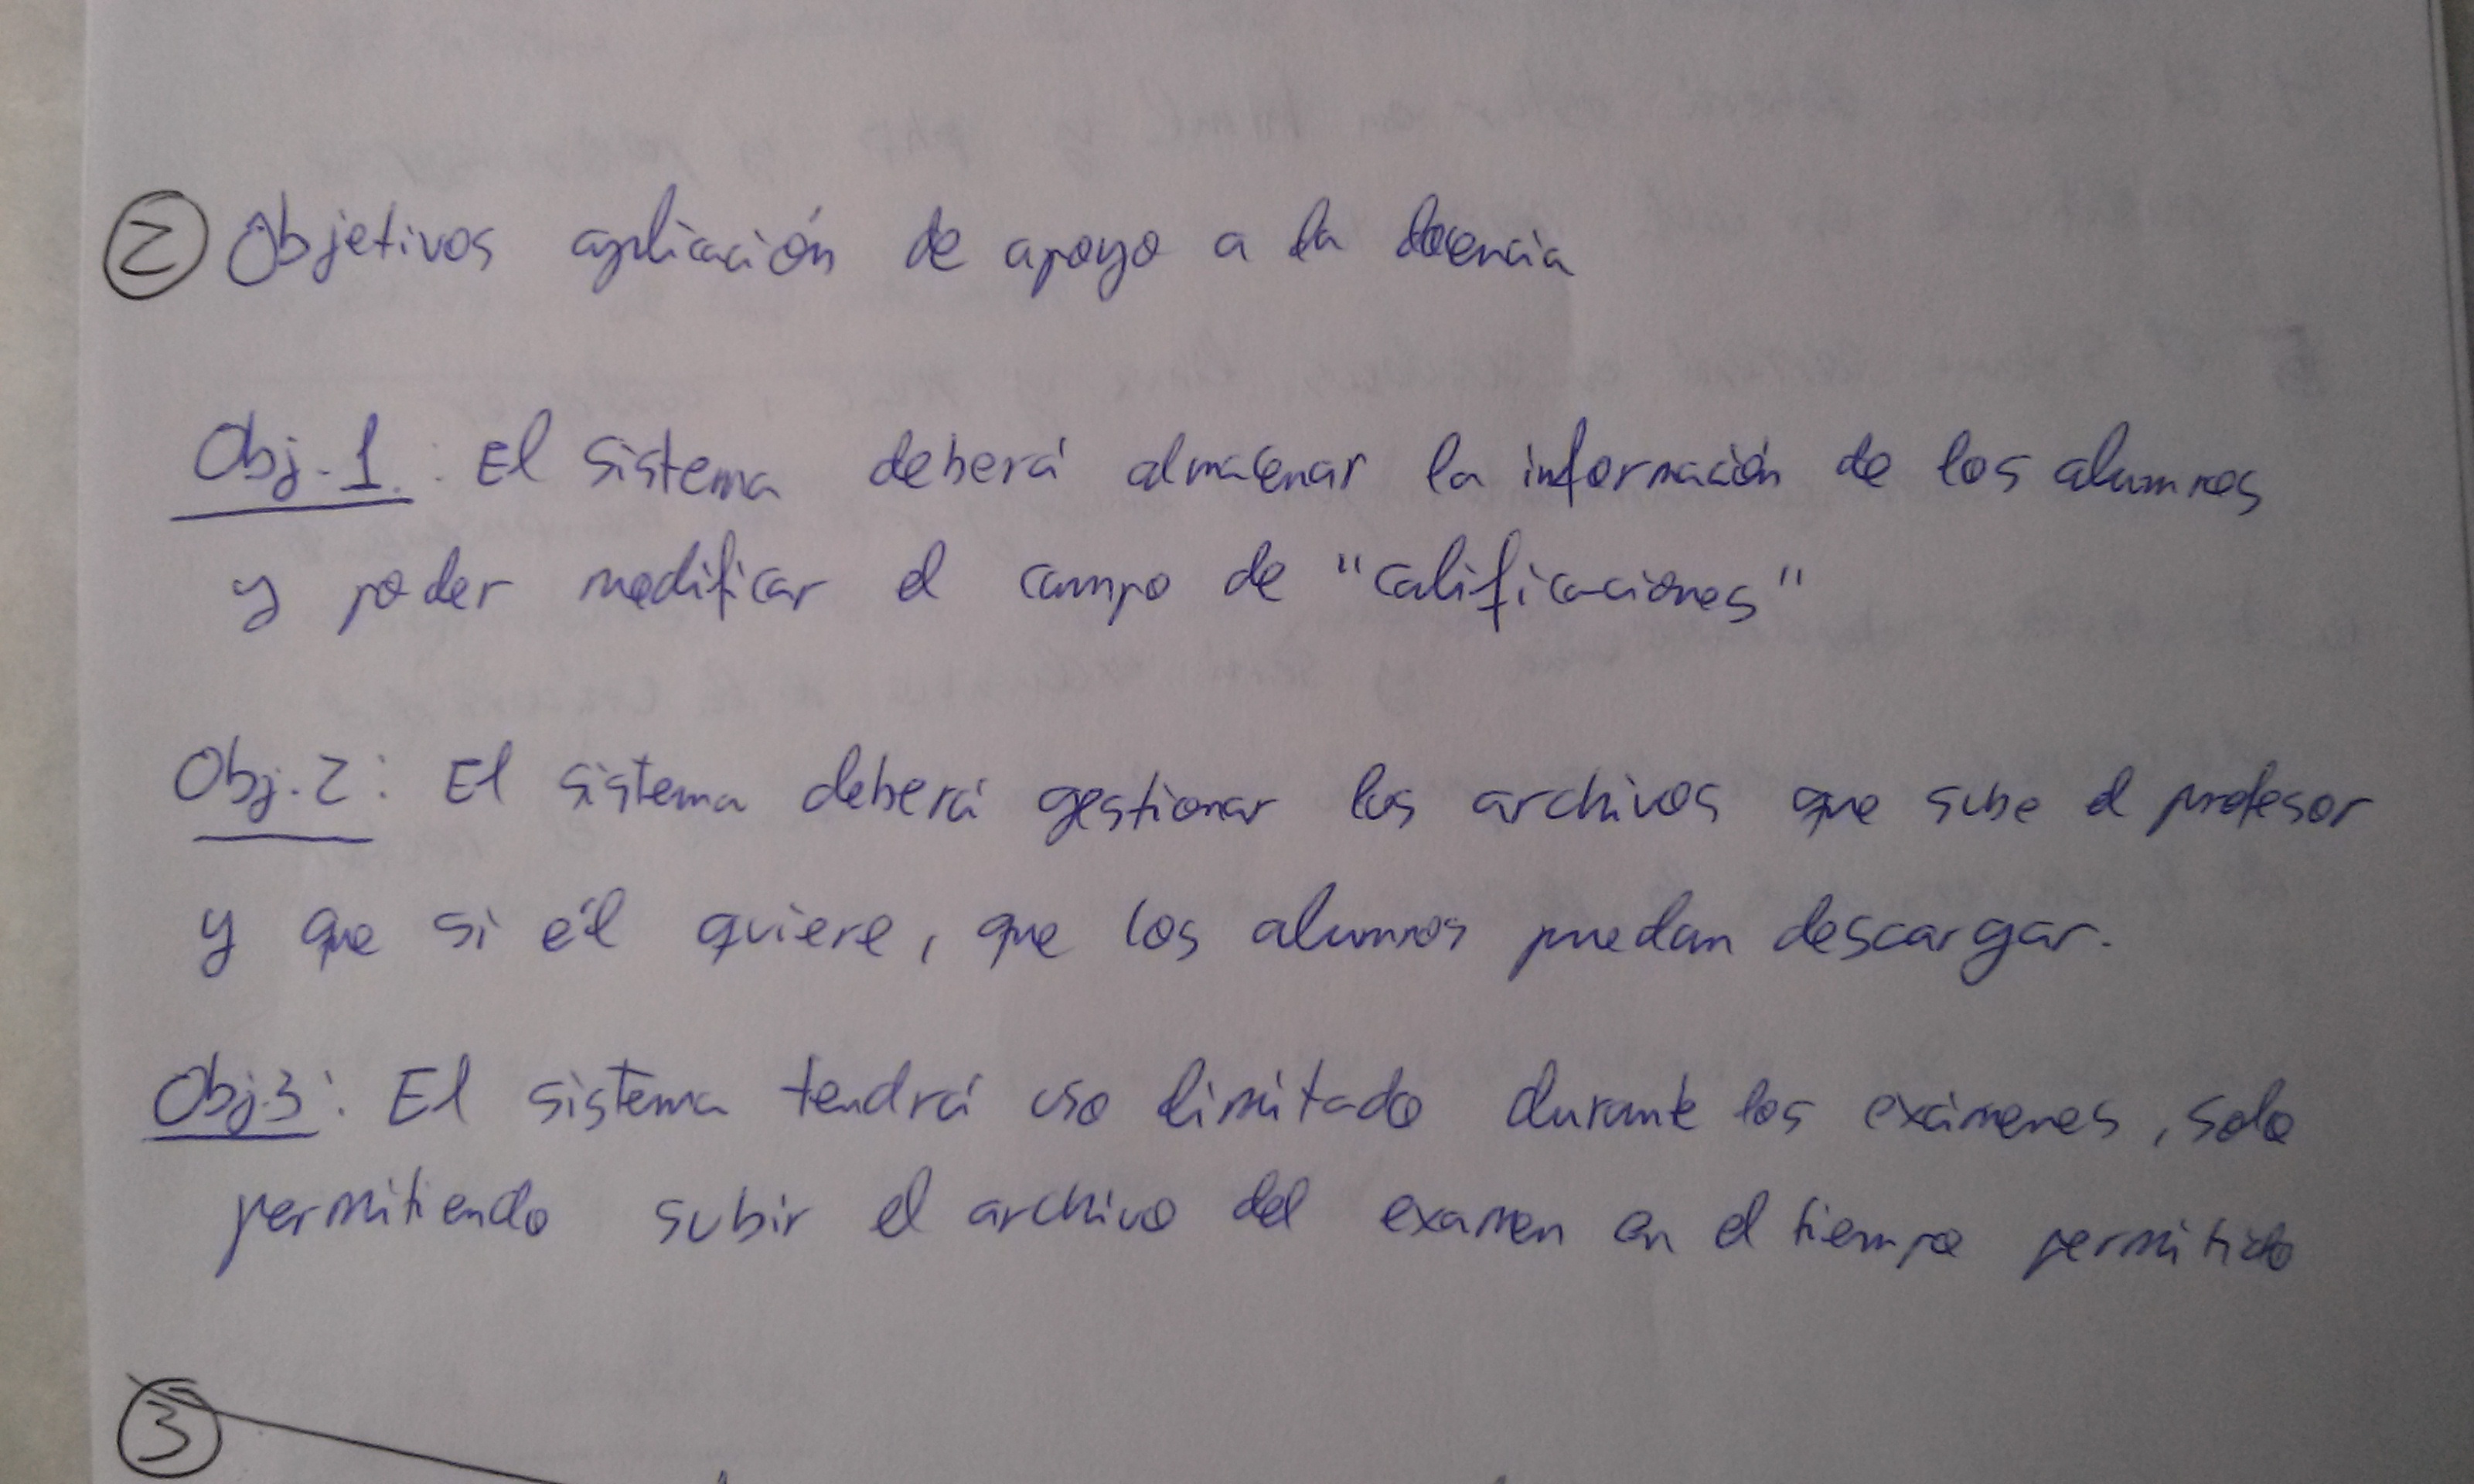 ② Objetivos aplicación de apoyo a la docencia
Obj.1.: El sistema deberá almacenar la información de los alumnos
y poder modificar el campo de "calificaciones"
Obj.2: El sistema deberá gestionar los archivos que sube el profesor
y que si él quiere, que los alumnos puedan descargar.
Obj.3: El sistema tendrá uso limitado durante los exámenes, solo
permitiendo subir el archivo del examen en el tiempo permitido
③